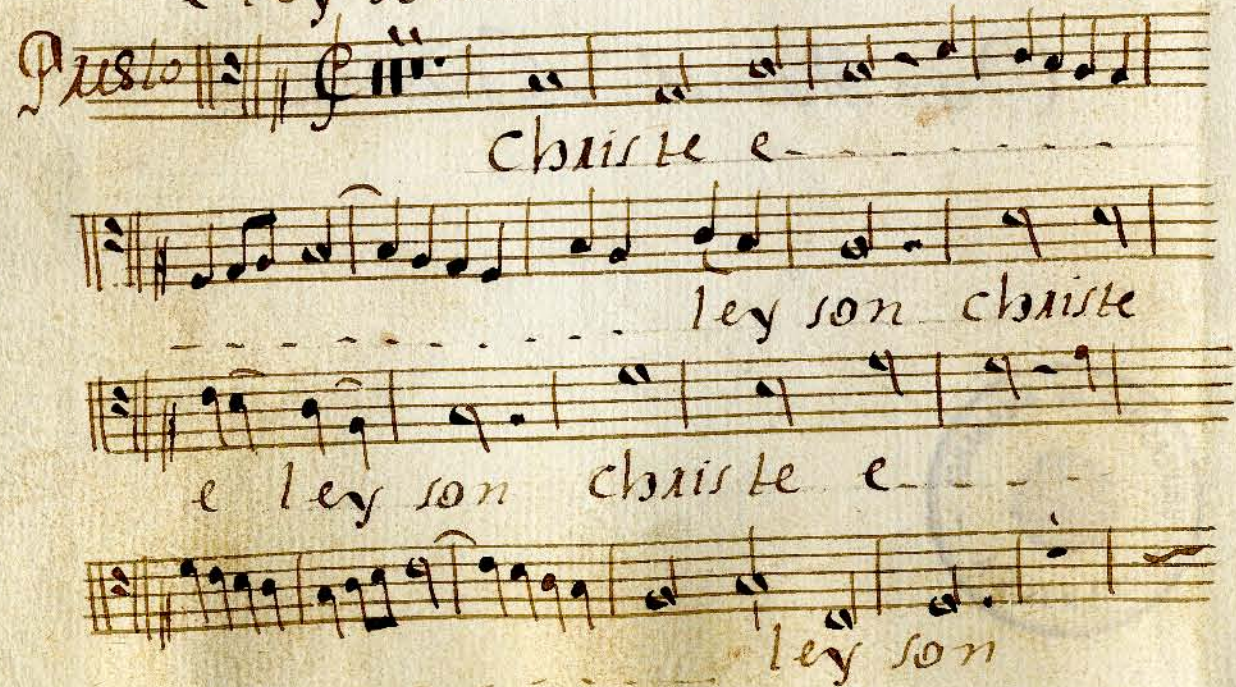 ley so
Pusto
Christe e - - - - - - - -
- - - - - - - - ley son christe
e ley son christe e - - - -
ley son